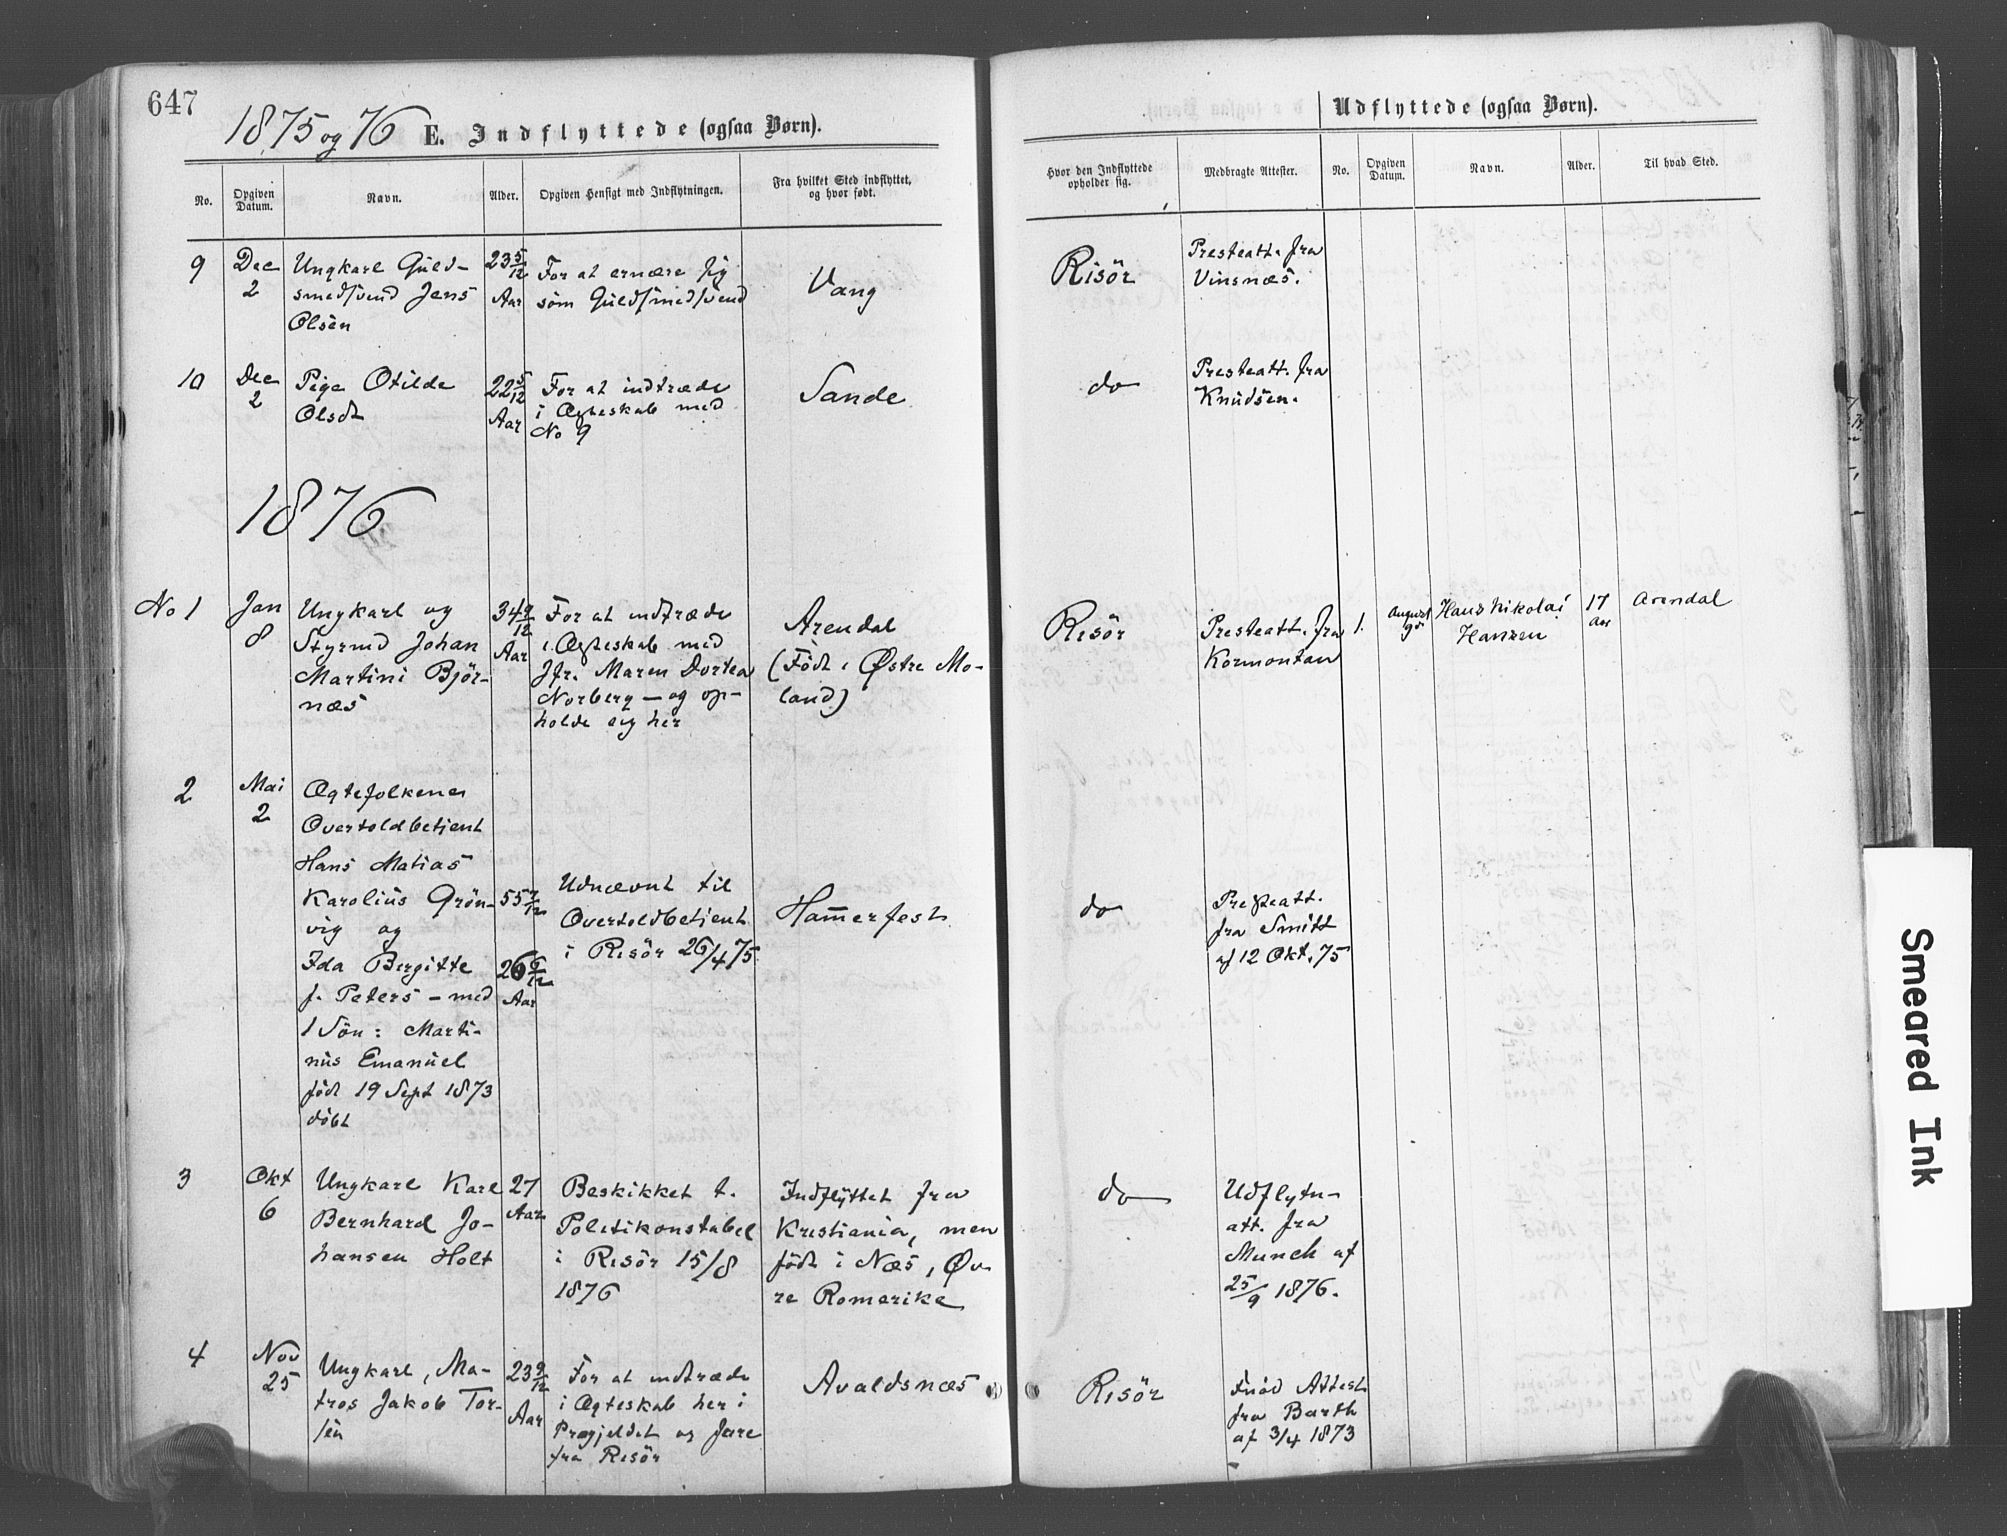 647
1875 og 76 E. Indflyttede (ogsaa Børn).
No.
Opgiven Datum.
Navn.
Alder.
Opgiven Hensigt med Indflytningen.
Fra hvilket Sted indflyttet, og hvor født.
Hvor den Indflyttede opholder sig.
Medbragte Attester.
Udflyttede (ogsaa Børn).
No.
Opgiven Datum.
Navn.
Alder.
Til hvad Sted.
9
Dec
2
Ungkarl Guld-
smedsvend Jens
Olsen
23 5/12
Aar
For at ernære sig
som Guldsmedsvend
Vang
Risör
Presteatt. fra
Vinsnæs.
10
Dec
2
Pige Otilde
Olsdt
22 5/12
Aar
For at indtræde
i Ægteskab med
No 9
Sande
do
Presteatt. fra
Knudsen.
1876
No 1
Jan
8
Ungkarl og
Styrmd Johan
Martini Björ-
næs
34 9/12
Aar
For at indtræde
i Ægteskab med
Jfr. Maren Dortea
Norberg – og op-
holde sig her
Arendal
(Födt i Østre Mo-
land)
Risör
Presteatt. fra
Kormontan
1.
August
Hans Nikolai
Hansen
17
aar
Arendal
2
Mai
2
Ægtefolkene
Overtoldbetjent
Hans Matias
Karolius Grön-
vig og
Ida Bergitte
f. Peters – med
1 Sön: Marti-
nus Emanuel
född 19 Sept 1873
döbt
55 7/12
26 6/12
Aar
Udnævnt til
Overtoldbetjent
i Risör 26/4 75
Hammerfest
do
Presteatt.
fra Smitt
af 12 Okt. 75
3
Okt
6
Ungkarl Karl
Bernhard Jo-
hansen Holt
27
Aar
Beskikket t.
Politikonstabel
i Risör 15/8
1876
Indflyttet fra
Kristiania, men
född i Næs, Øv-
re Romerike
do
Udflytn-
att. fra
Munch af
25/9 1876.
4
Nov
25
Ungkarl, Ma-
tros Jakob Tor-
sen
23 9/12
Aar
For at indtræde
i Ægteskab her i
Prægjeldet og fare
fra Risör
Avaldsnæs
Risör
Attest
fra Barth
af 3/4 1873
Smeared Ink